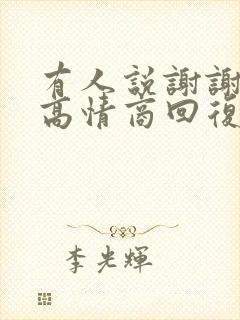 有人説謝謝
高情商回復
李光輝